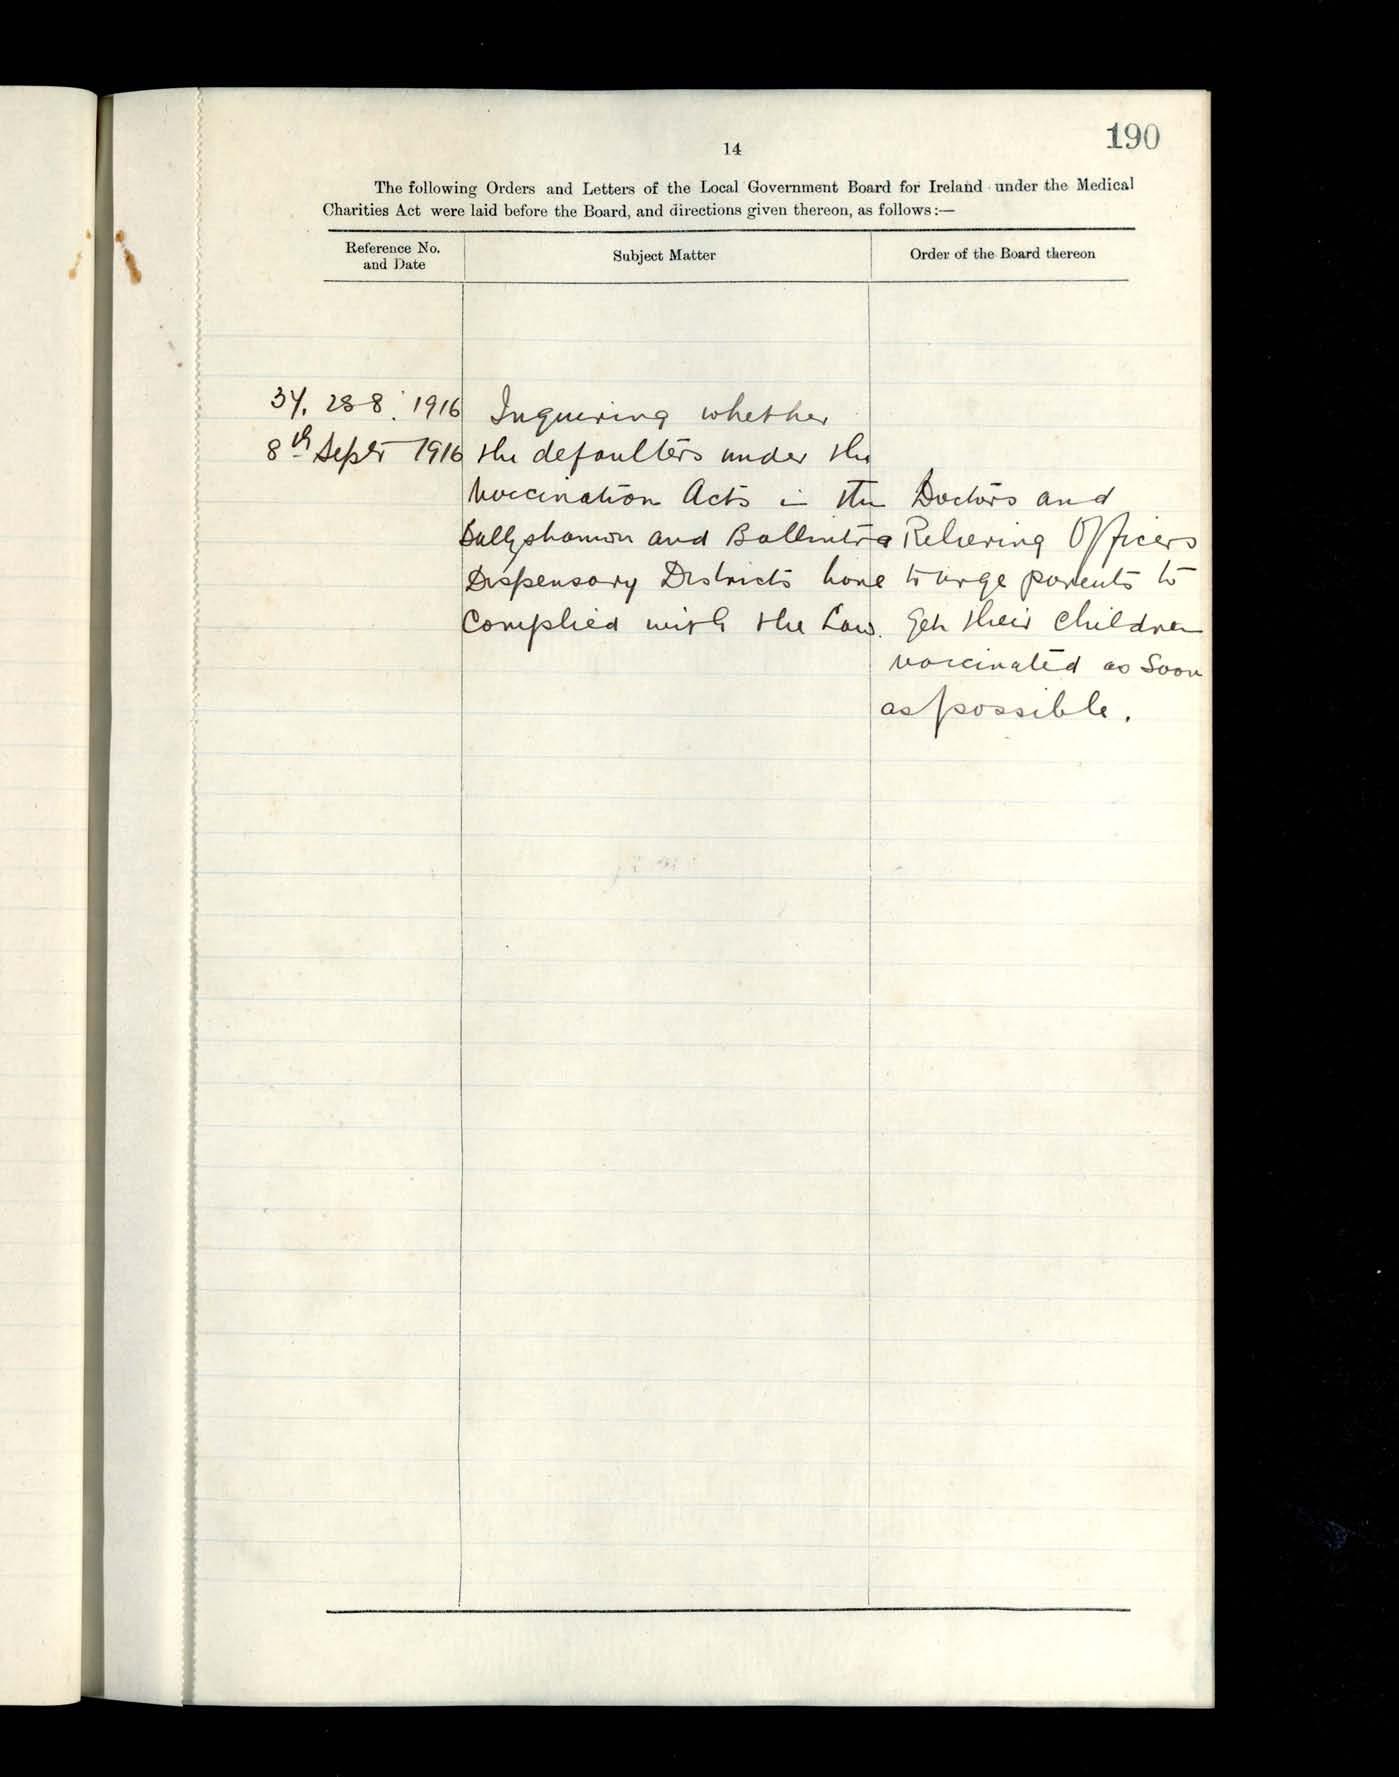 190
14
The following Orders and Letters of the Local Government Board for Ireland under the Medical
Charities Act were laid before the Board, and directions given thereon, as follows:—
Reference No.
and Date
Subject Matter
Order of the Board thereon
28-8. 1916
8th Septr 1916
Inquiring whether
the defaulters under the
Vaccination Acts in the
Ballyshannon and Ballintra
Dispensary Districts have
complied with the Law.
Doctors and
Relieving Officers
to urge parents to
get their children
vaccinated as soon
as possible.